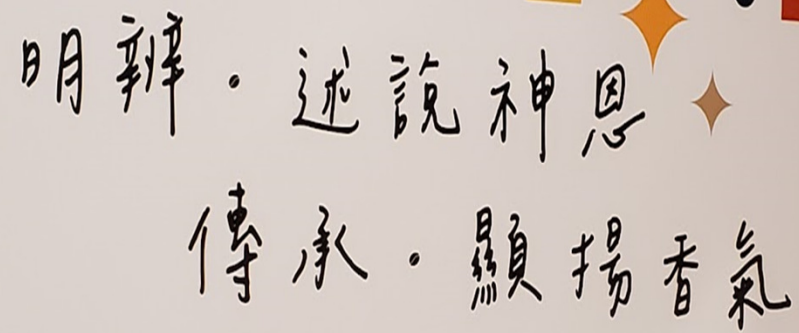 明辨．述說神恩
傳承．顯揚香氣